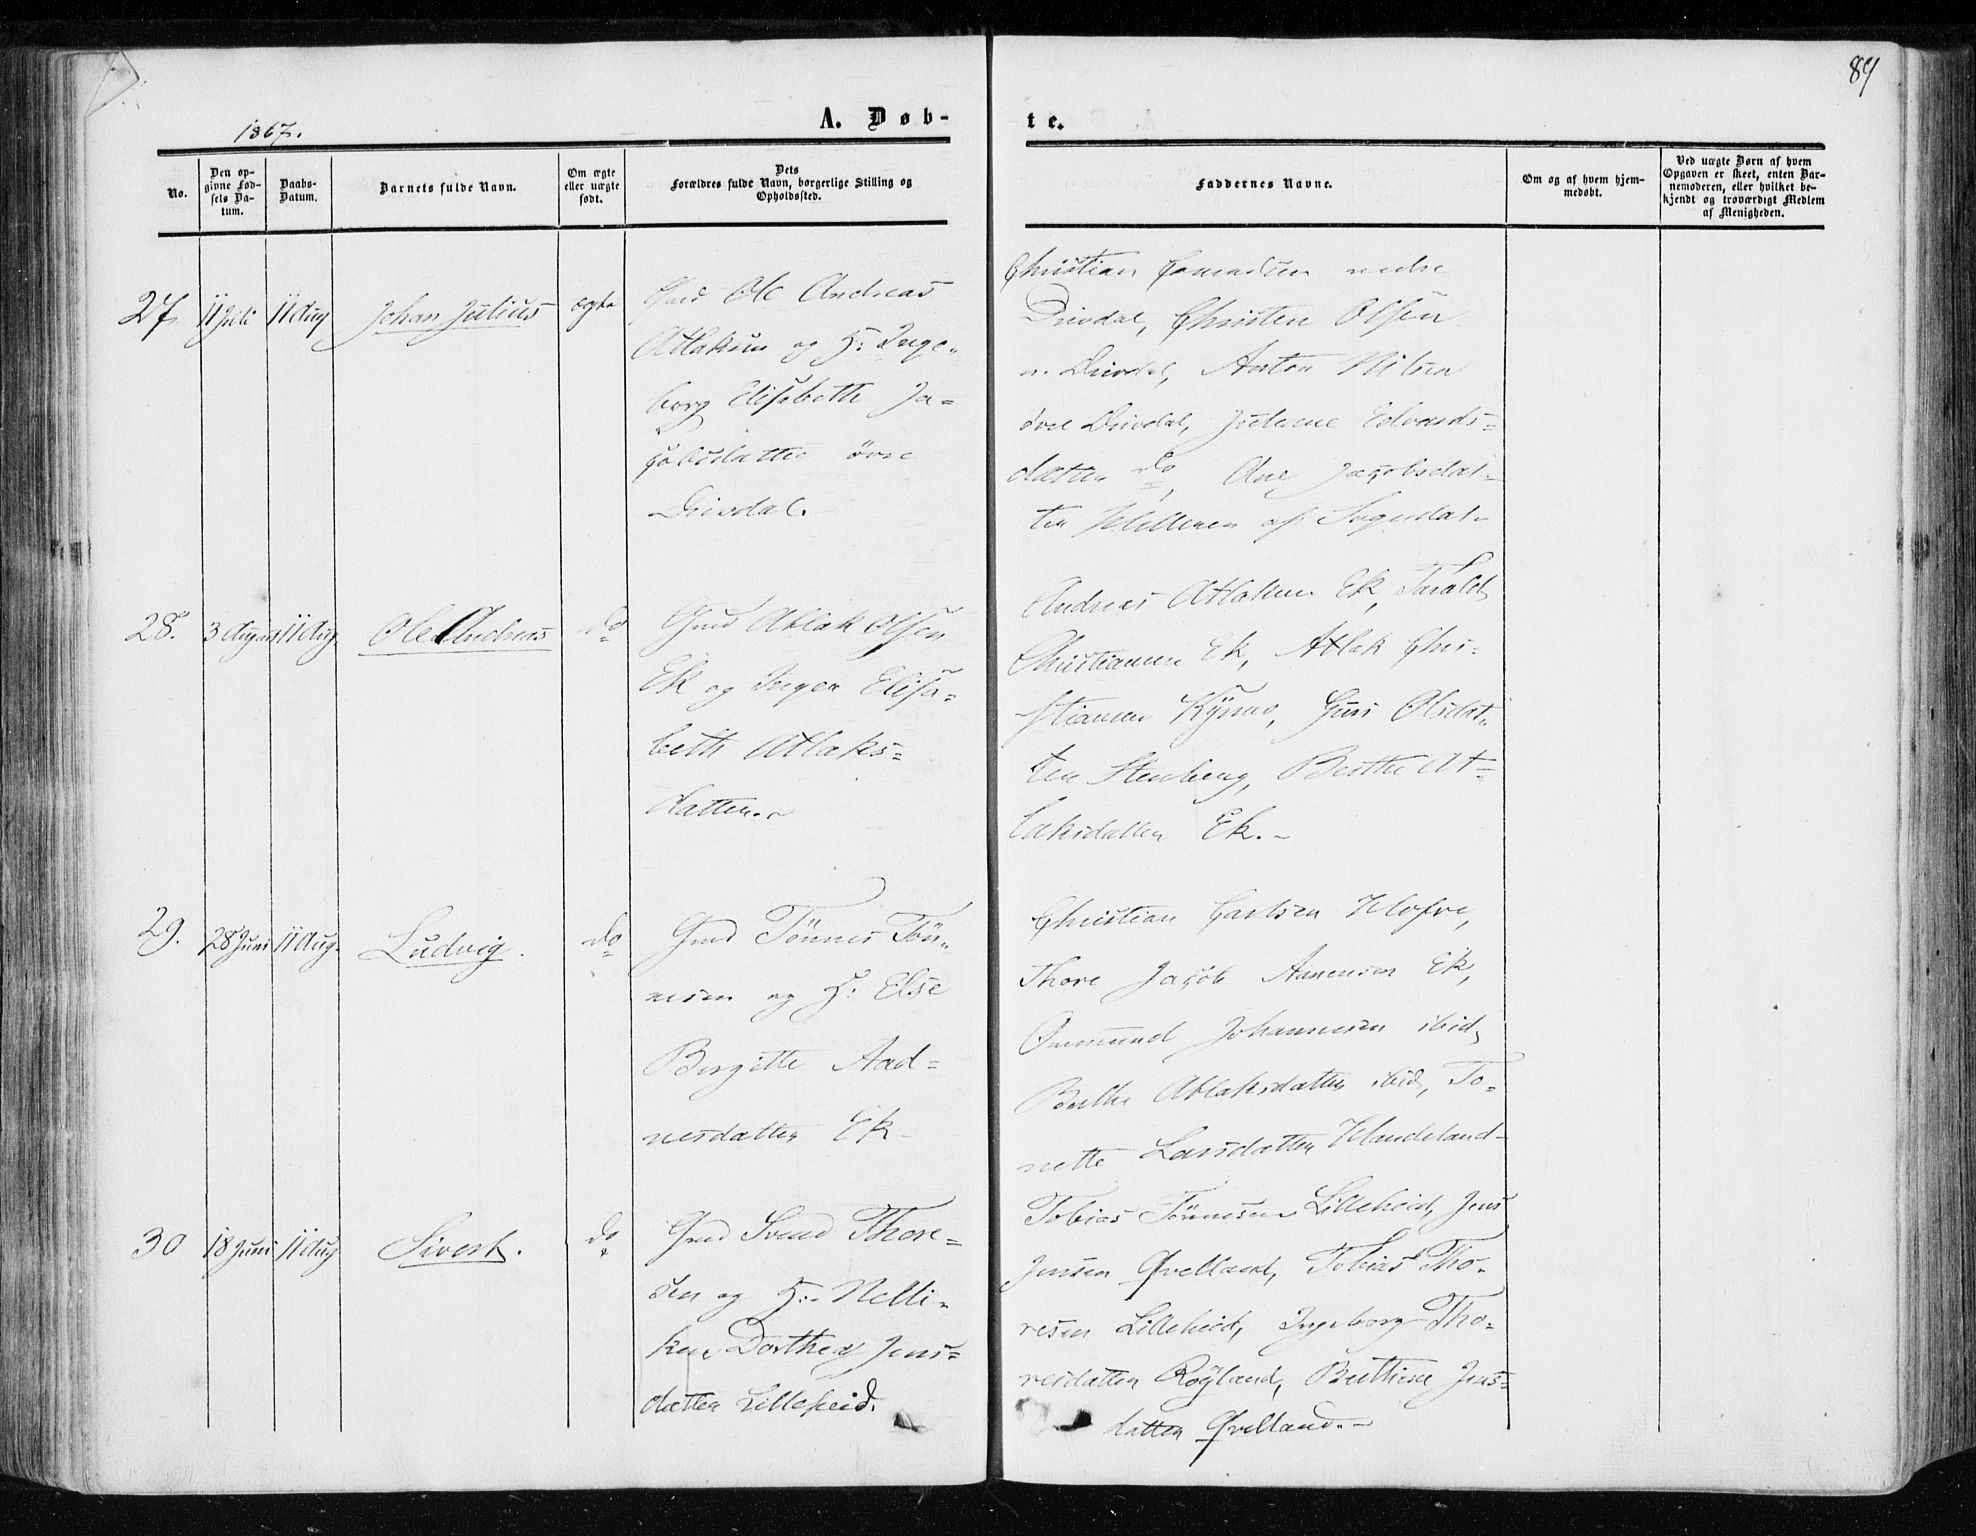 89
1867.
A. Døb-
te.
No.
Den op-
givne Fød-
sels Da-
tum.
Daabs-
Datum.
Barnets fulde Navn.
Om ægte
eller uægte
født.
Dets
Forældres fulde Navn, borgerlige Stilling og
Opholdssted.
Faddernes Navne.
Om og af hvem hjem-
medøbt.
Ved uægte Børn af hvem
Opgaven er skeet, enten Bar-
nemoderen, eller hvilket be-
kjendt og troværdigt Medlem
af Menigheden.
27. 11 Juli 11 Aug Johan Julius ægte
Gmd Ole Andreas
Atlaksen og H: Inge-
borg Elisebeth Ja-
cobsdatter övre
Drivdal.
Christian nedre
Drivdal, Christen Olsen
n. Drivdal, Anton Nilsen
övre Drivdal, Juliane Edvards=
datter do, Ane Jacobsdat-
ter af Sogndal-
28. 3 August 11 Aug. Ole Andreas do
Gmd Atlak Olsen
Ek og Inger Elisa-
beth Atlaks=
datter.
Andreas Atlaksen Ek, Tarald
Christiansen Ek, Atlak Chri-
stiansen Kÿrmo, Guri Olsdat-
ter Stenberg, Berthe At=
laksdatter Ek.-
29. 28 Juni 11 Aug. Ludvig. do
Gmd Tönnes Tön-
nesen og H: Else
Birgitte Aad=
nesdatter Ek-
Christian Carlsen
Thore Jacob Aanensen Ek,
Ommund Johannesen ibid,
Berthe Atlaksdatter ibid, To-
nette Larsdatter Haudeland-
30 18 Juni 11 Aug Sivert. do
Gmd Svend Thore=
sen og H: Nelli-
ken Dorthea Jens=
datter Lilleheid.
Tobias Tönnesen Lilleheid, Jens
Jensen Qvelland, Tobias Tho-
resen Lilleheid, Ingeborg Tho-
resdatter Röÿland, Berthine Jens=
datter Qvelland.-